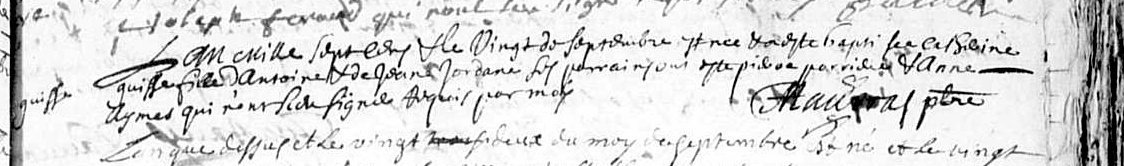 et Joseph qui n'ont sceu signer
L'an mille sept cens & le Vingt de septembre est née & a este baptisee Catherine
guiffe fille d'Antoine & de Jeane Jordane ses parrain sont este pierre & Anne
guiffe
Aymas qui n'ont sceu signer requis par moy
ptre
L'an que dessus et le vingt deux du moy de septembre est né et le vingt